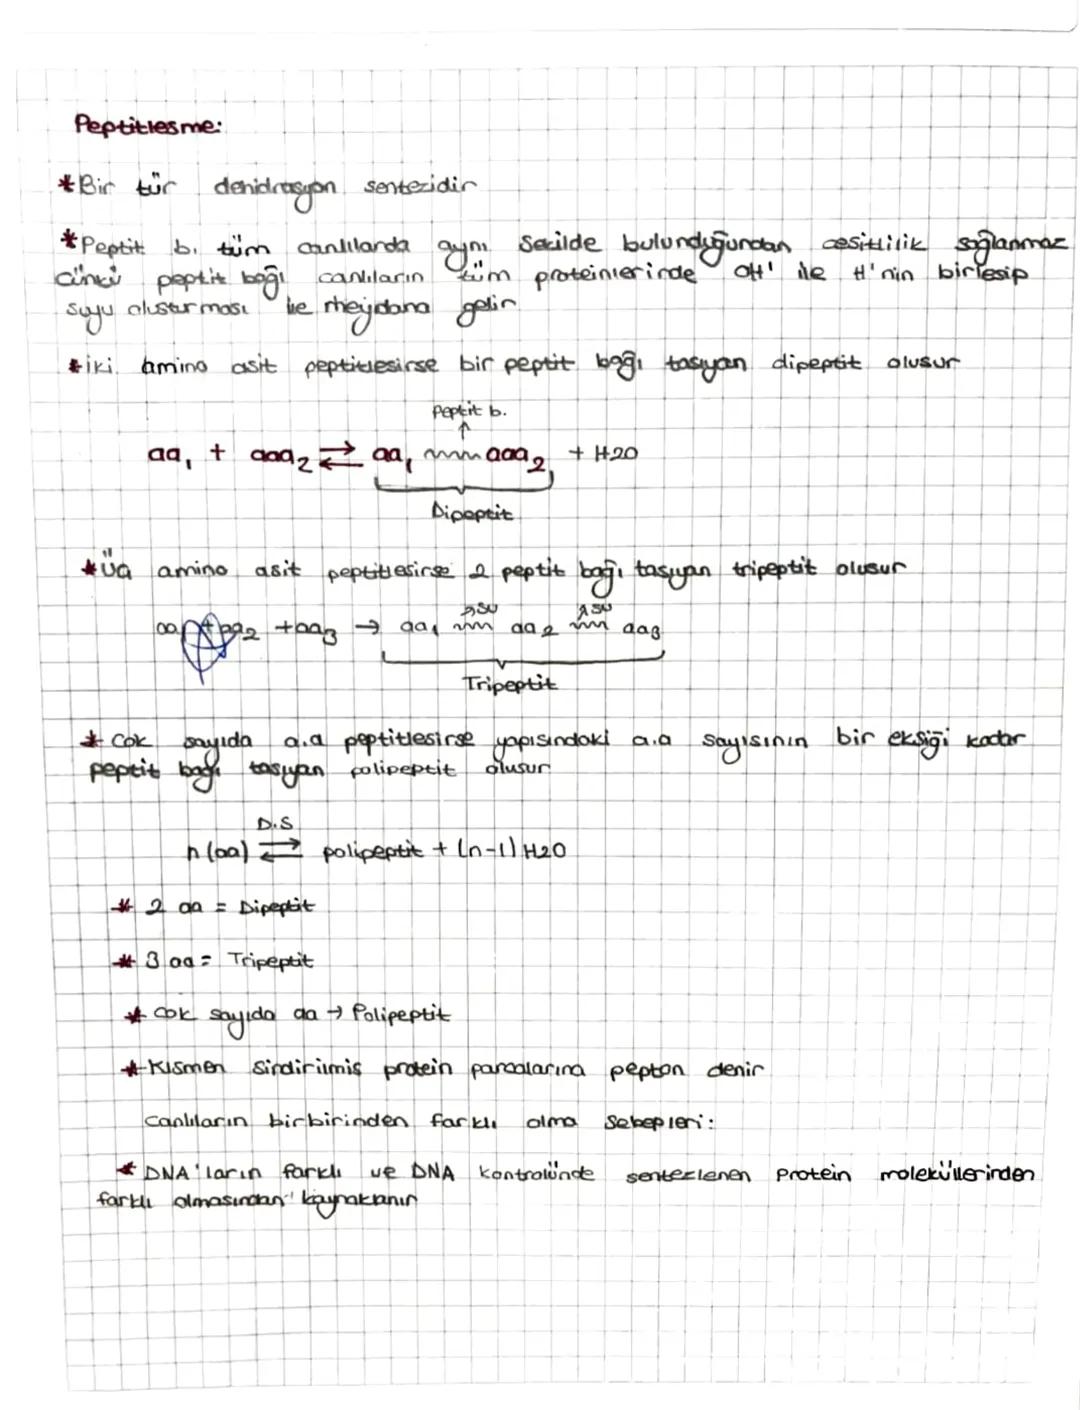 Peptitlesme:
*Bir tür dehidrasyon sentezidir
*Peptit b. tüm canlılarda aynı Sekilde bulunduğundan cesitlilik sağlanmaz
Cünkü peptit bağı canlıların tüm proteinlerinde OH' ile H'nin birlesip
suyu olusturması ile meydana gelir
*iki amino asit peptitlesirse bir peptit bağı tasıyan dipeptit olusur
Peptit b.
↑
aa₁ + aaa₂ ⇄ aa₁ aaa₂ + H2O
Dipeptit
*Üç amino asit peptitlesirse 2 peptit bağı tasıyan tripeptit olusur
↗su ↗su
aa₁ + aa₂ + aa₃ → aa₁ aa₂ aa₃
Tripeptit
* Cok sayıda a.a peptitlesirse yapısındaki a.a sayısının bir eksiği kadar
peptit bağı tasıyan polipeptit olusur
D.S
n(aa) ⇄ polipeptit + (n-1) H2O
* 2 aa = Dipeptit
* 3 aa = Tripeptit
* cok sayıda aa → Polipeptit
*Kısmen Sindirilmis protein parcalarına pepton denir
Canlıların birbirinden farklı olma Sebepleri:
* DNA'ların farklı ve DNA kontrolünde sentezlenen Protein moleküllerinden
farklı olmasından kaynaklanır